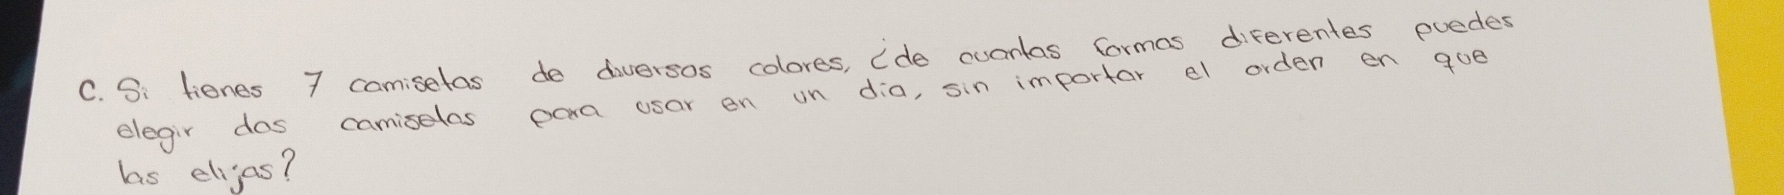 C. Si tienes 7 camisetas de diversos colores, ¿de cuantas formas diferentes puedes
elegir dos camisetas para usar en un dia, sin importar el orden en que
las elijas?